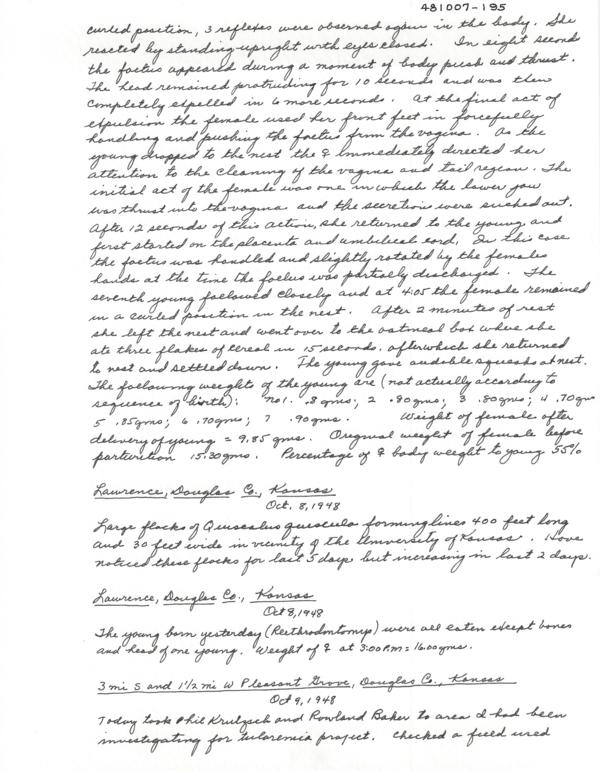 481007-195
curled position, 3 reflexes were observed again in the body. She
reacted by standing upright with eyes closed. In eight seconds
the foetus appeared during a moment of body push and thrust.
The head remained protruding for 10 seconds and was then
completely expelled in 6 more seconds. At the final act of
expulsion the female used her front feet in forcefully
handling and pushing the foetus from the vagina. As the
young dropped to the nest the ♀ immediately directed her
attention to the cleaning of the vagina and tail region. The
initial act of the female was one in which the lower jaw
was thrust into the vagina and the secretion were sucked out.
After 12 seconds of this action, she returned to the young and
first started on the placenta and umbilical cord. In this case
the foetus was handled and slightly rotated by the females
hands at the time the foetus was partially discharged. The
seventh young followed closely and at 4:05 the female remained
in a curled position in the nest. After 2 minutes of rest
she left the nest and went over to the oatmeal box where she
ate three flakes of cereal in 15 seconds, afterwhich she returned
to nest and settled down. The young gave audable squeaks at nest.
The following weights of the young are (not actually according to
sequence of birth): no 1. .8 gms; 2 .80gms; 3 .80gms; 4 .70gms
5 .85gms; 6 .70gms; 7 .90gms. Weight of female after
delivery of young = 9.85 gms. Original weight of female before
parturition 15.30gms. Percentage of ♀ body weight to young 55%
Lawrence, Douglas Co., Kansas
Oct. 8, 1948
Large flocks of Quiscalus quiscula forming lines 400 feet long
and 30 feet wide in vicinity of the University of Kansas. Have
noticed these flocks for last 5 days but increasing in last 2 days.
Lawrence, Douglas Co., Kansas
Oct 8, 1948
The young born yesterday (Reithrodontomys) were all eaten except bones
and head of one young. Weight of ♀ at 3:00 P.M = 16.00gms.
3 mi S and 1 1/2 mi W Pleasant Grove, Douglas Co., Kansas
Oct 9, 1948
Today took Phil Krutzsch and Rowland Baker to area I had been
investigating for tularemia project. Checked a field used